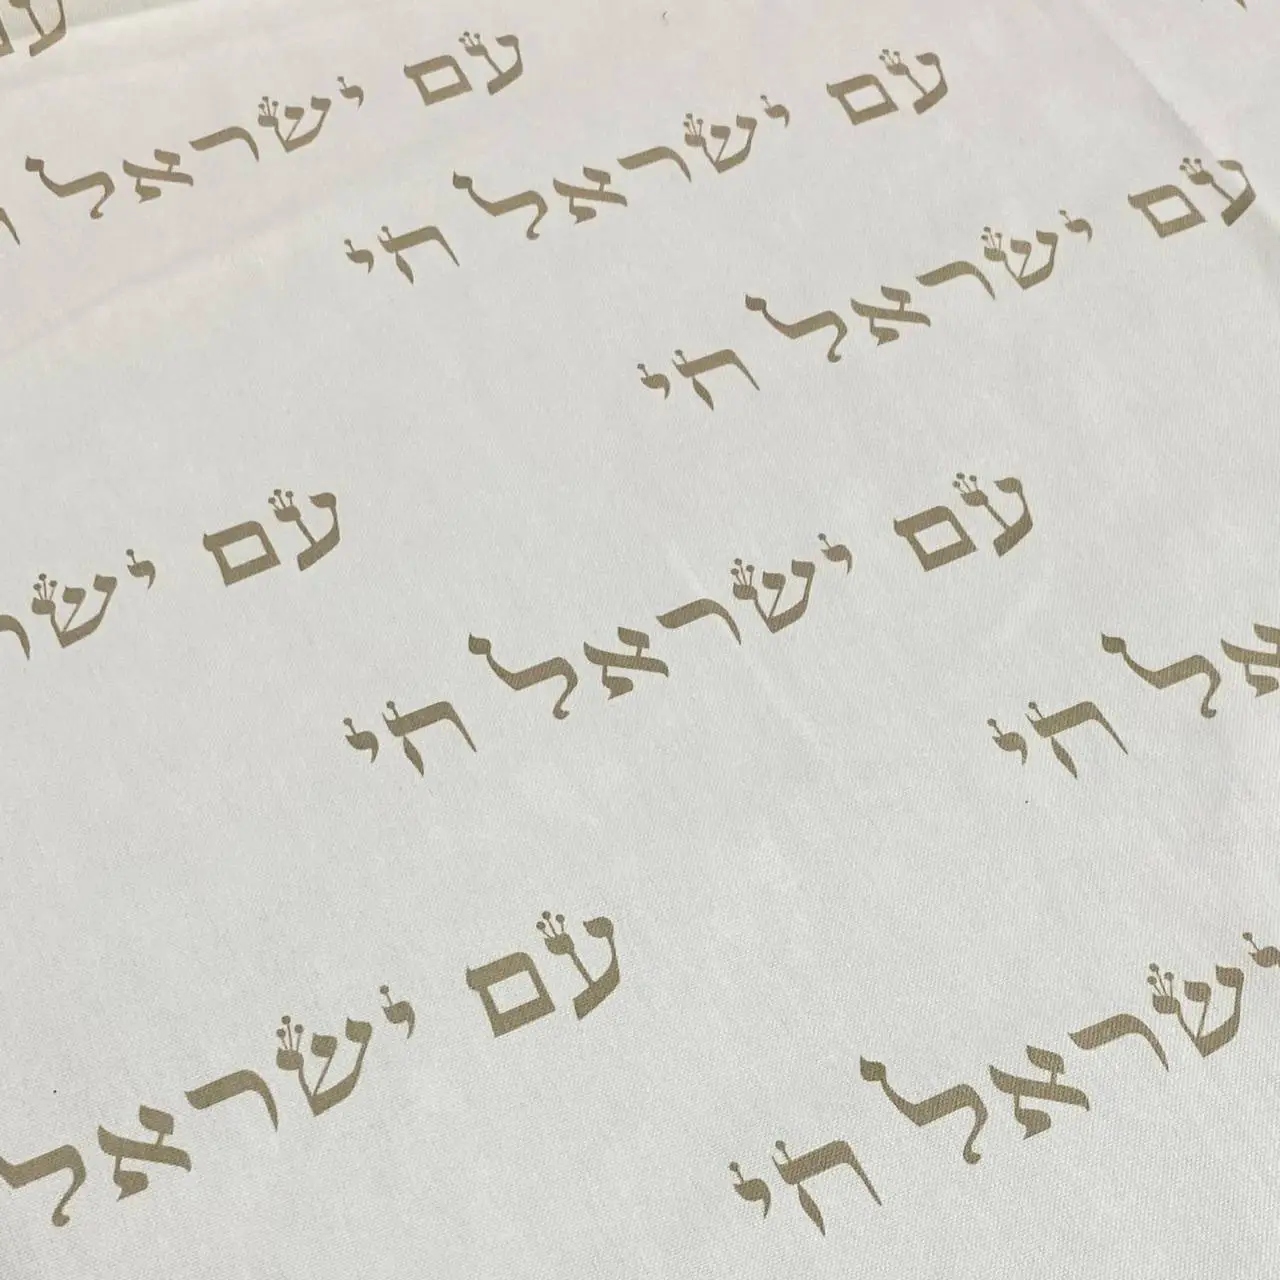 עם ישראל חי
עם ישראל חי
עם ישראל חי
עם ישר
עם ישראל חי
אל חי
עם ישראל
ישראל חי